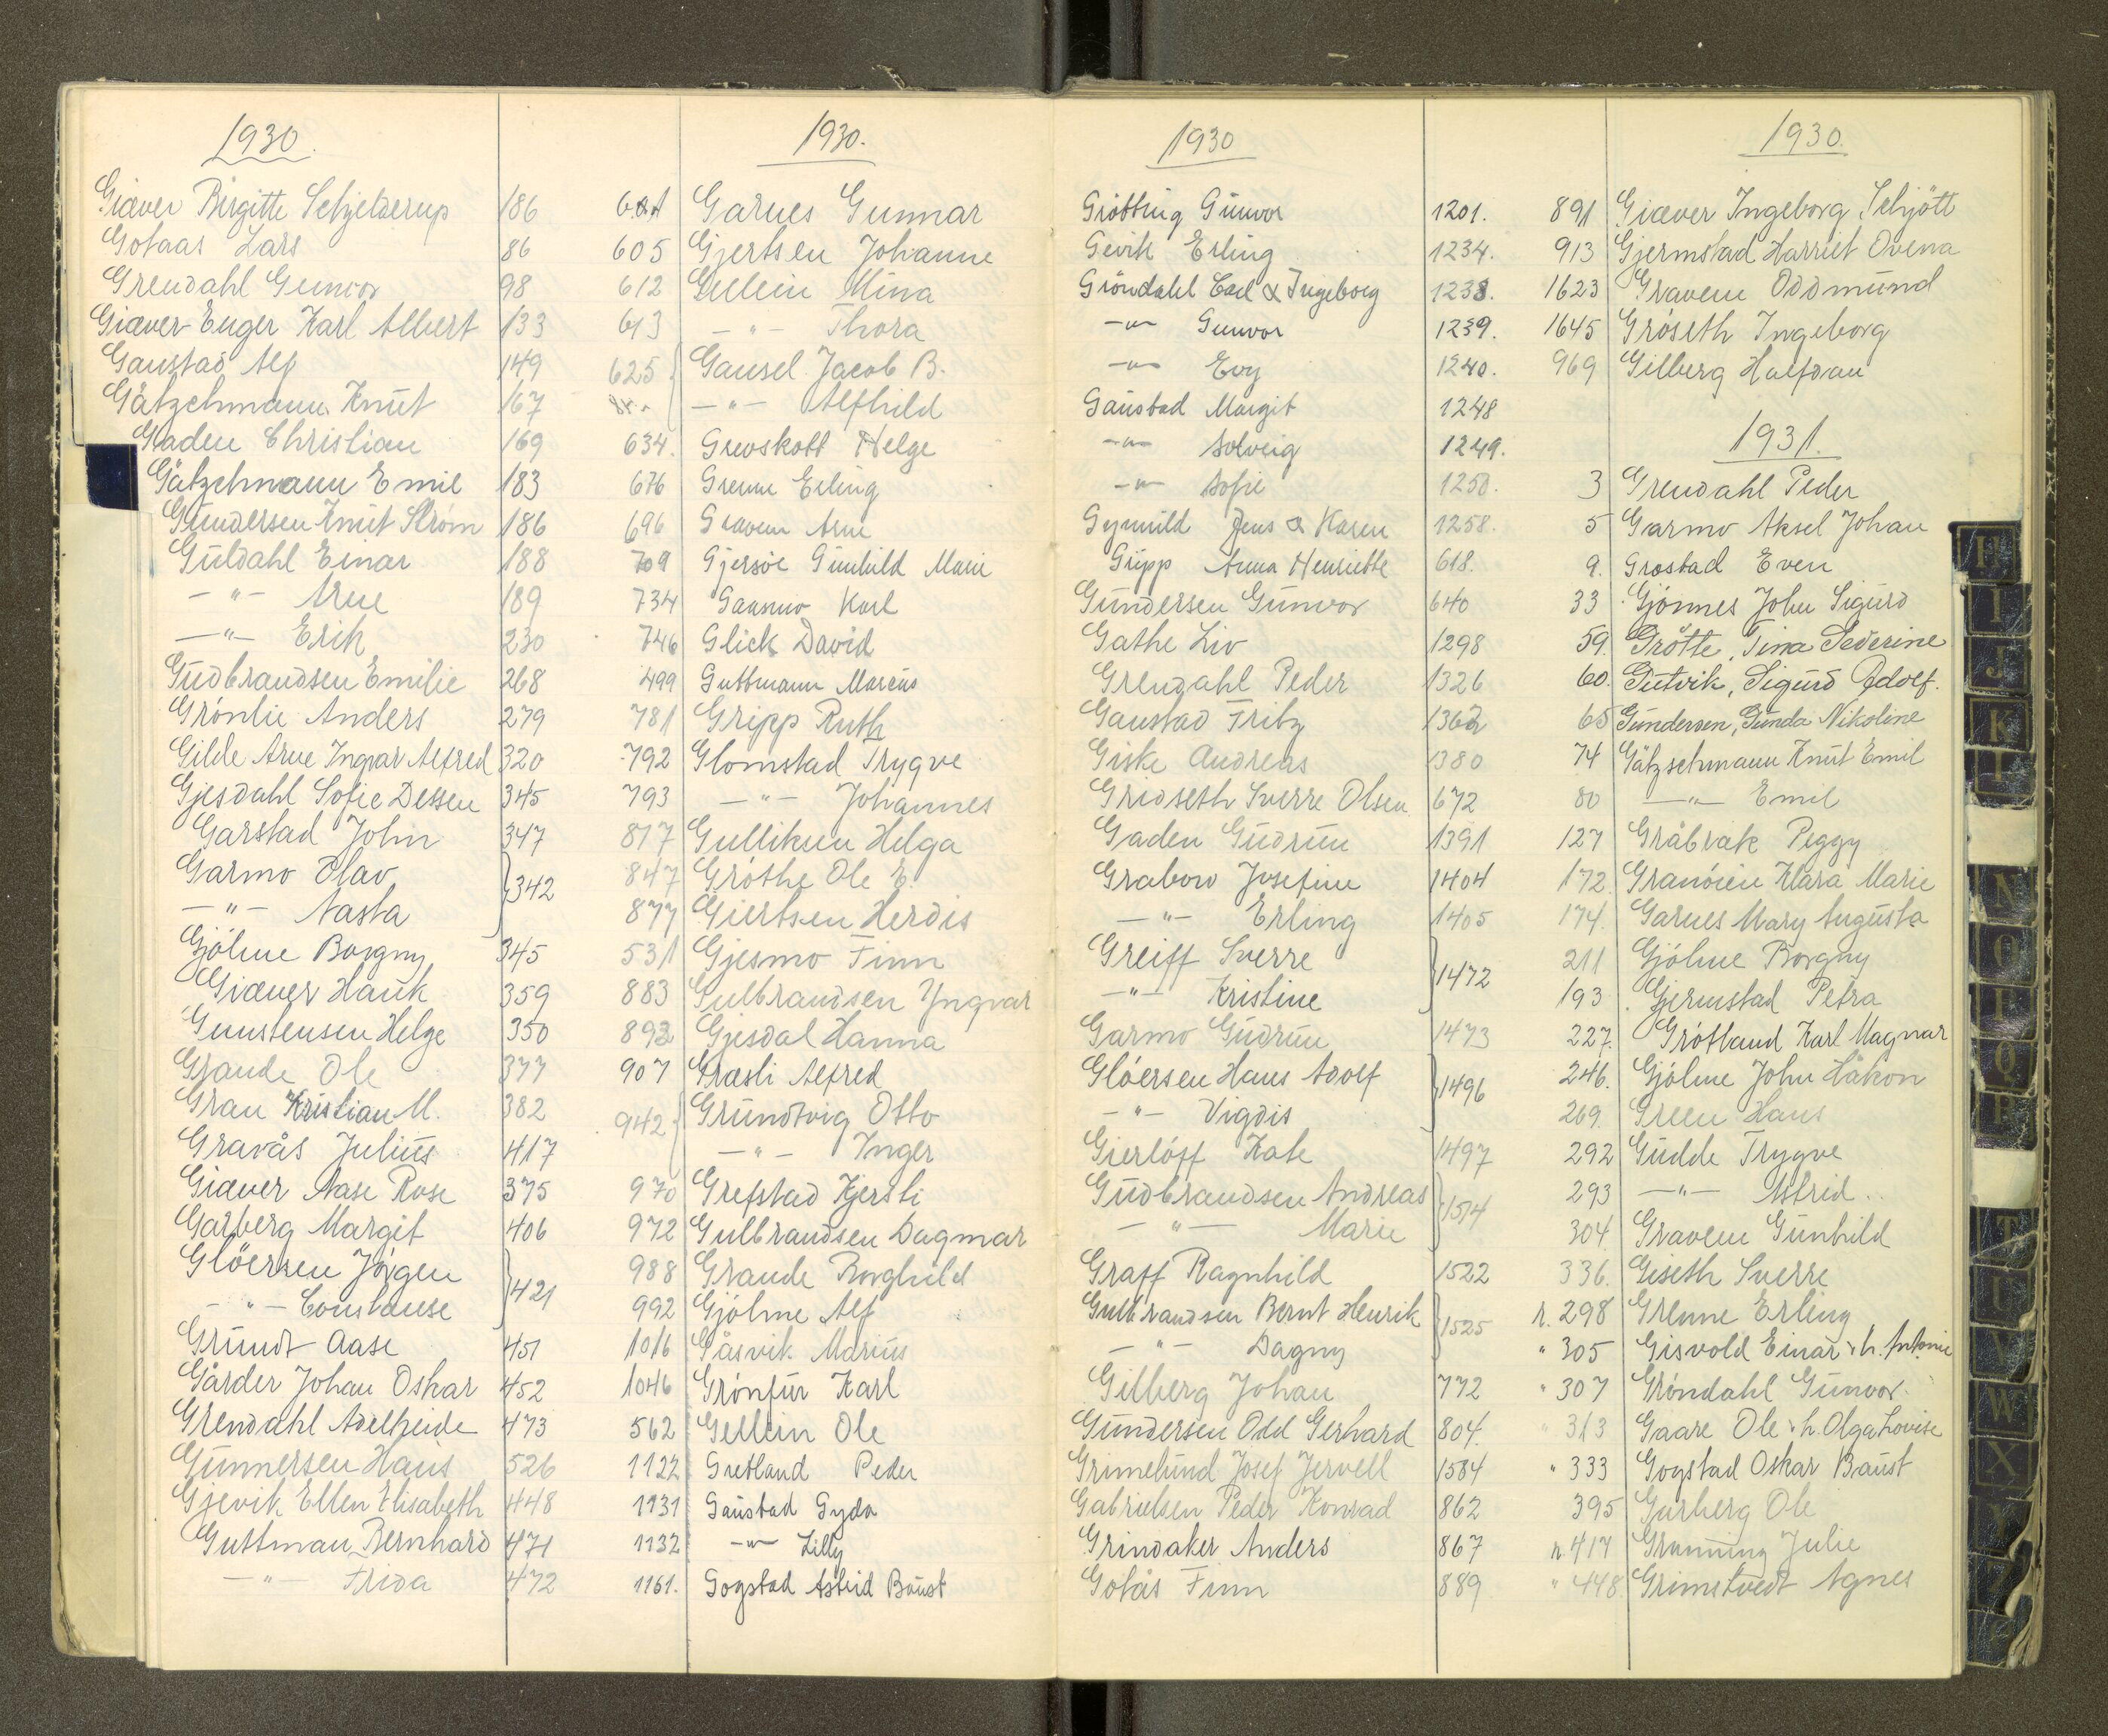 1930.
Giæver Birgitte Schjelderup 186
Gotaas Lars 86
Grendahl Gunvor 98
Giæver-Enger Karl Albert 133
Gaustad Alf 149
Gätzchmann Knut 167
Gaden Christian 169
Gätzchmann Emil 183
Gundersen Knut Strøm 186
Guldahl Einar 188
-"- Arne 189
-"- Erik 230
Gudbrandsen Emilie 268
Grönlie Anders 279
Gilde Arne Ingvar Alfred 320
Gjesdahl Sofie Dessen 345
Garstad John 347
Garmo Olav } 342
-"- Aasta
Gjölme Borgny 345
Giæver Hauk 359
Gunstensen Helge 350
Grande Ole 377
Grau Kristian M. 382
Gravås Julius 417
Giæver Aase Rose 375
Garberg Margit 406
Glöersen Jörgen } 421
-"- Constanse
Grundt Aase 451
Gårder Johan Oskar 452
Grendahl Adelheide 473
Gunnersen Hans 526
Gjevik Ellen Elisabeth 448
Guttman Bernhard 471
-"- Frida 472
1930.
Garnes Gunnar
605 Gjertsen Johanne
612 Gellein Mina
613 -"- Thora
625 { Gausel Jacob B.
-"- Alfhild
634. Grevskott Helge
676 Grenne Erling
696 Gravem Arne
709 Gjersöe Gunhild Marie
734 Gaasmo Karl
746 Glick David
499 Guttmann Marcus
781 Gripp Ruth
792 Glomstad Trygve
793 -"- Johannes
817 Gulliksen Helga
847 Gröthe Ole E.
877 Giertsen Herdis
531 Gjesmo Finn
883 Gulbrandsen Yngvar
892 Gjesdal Hanna
907 Græsli Alfred
942 { Grundtvig Otto
-"- Inger
970 Grefstad Kjersti
972 Gulbrandsen Dagmar
988 Grande Borghild
992 Gjölme Alf
1016 Gåsvik Marius
1046 Grönfur Karl
562 Gellein Ole
1122 Gretland Peder
1131 Gaustad Gyda
1132 -"- Lilly
1161. Gogstad Astrid Baust
1930
Grötting Gunvor 1201.
Gevik Erling 1234.
Gröndahl Carl & Ingeborg 1238.
-"- Gunvor 1239.
-"- Evy 1240.
Gaustad Margit 1248
-"- Solveig 1249.
-"- Sofie 1250.
Gymnild Jens & Karen 1258.
Gripp Anna Henriette 618.
Gundersen Gunvor 640
Gathe Liv 1298
Grendahl Peder 1326
Gaustad Fritz 1362
Giske Andreas 1380
Gridseth Sverre Olsen 672
Gaden Gudrun 1391
Grabow Josefine 1404
-"- Erling 1405
Greiff Sverre } 1472
-"- Kristine
Garmo Gudrun 1473
Glöersen Hans Adolf } 1496
-"- Vigdis
Gierlöff Kate 1497
Gudbrandsen Andreas } 1514
-"- Marie
Graff Ragnhild 1522
Gulbrandsen Bernt Henrik } 1525
-"- Dagny
Gilberg Johan 772
Gundersen Odd Gerhard 804.
Grimelund Josef Jervell 1584
Gabrielsen Peder Konrad 862
Grindaker Anders 867
Gotås Finn 889
1930.
891 Giæver Ingeborg Schjött
913 Gjermstad Harriet Ovena
1623 Gravem Oddmund
1645 Gröseth Ingeborg
969 Gilberg Halfdan
1931.
3 Grendahl Peder
5 Garmo Aksel Johan
9. Grostad Even
33 Gjönnes John Sigurd
59. Grötte, Tina Pederine
60. Gutvik, Sigurd Adolf.
65 Gundersen, Gunda Nikoline
74 Gätzschmann Knut Emil
80 -"- Emil
127 Gråbræk Peggy
172. Granöien Klara Marie
174. Garnes Mary Augusta
211 Gjölme Borgny
193. Gjermstad Petra
227. Grötland Karl Magnar
246. Gjölme John Håkon
269. Green Hans
292 Gudde Trygve
293 -"- Astrid..
304. Gravem Gunhild
336. Giseth Sverre
n. 298 Grenne Erling
" 305 Gisvold Einar & h. Antonie
" 307 Gröndahl Gunvor
" 313 Gaare Ole & h. Olga Lovise
" 333 Gogstad Oskar Baust
395 Garberg Ole
n. 417 Grønning Julie
" 448 Grimstvedt Agnes
H
I
J
K
L
N
O
P
Q
R
T
U
V
W
X
Y
Z